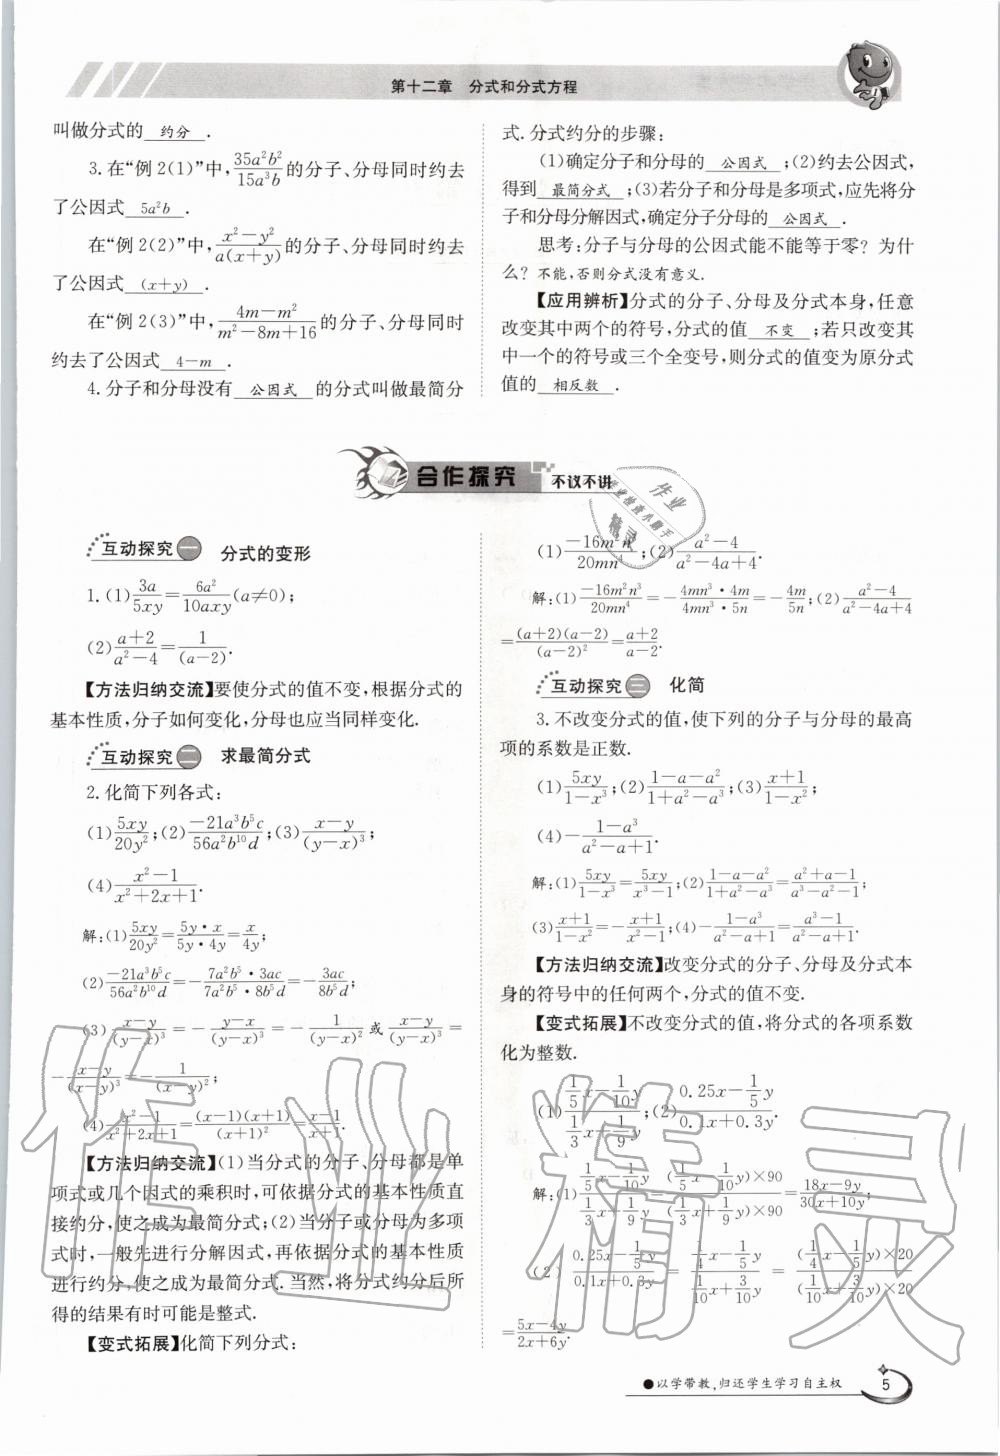 第十二章 分式和分式方程
叫做分式的 约分 .
3. 在“例 2(1)”中, \frac{35a^2b^2}{15a^3b} 的分子、分母同时约去
了公因式 5a^2b .
在“例 2(2)”中, \frac{x^2-y^2}{a(x+y)} 的分子、分母同时约去
了公因式 (x+y) .
在“例 2(3)”中, \frac{4m-m^2}{m^2-8m+16} 的分子、分母同时
约去了公因式 4-m .
4. 分子和分母没有 公因式 的分式叫做最简分
式. 分式约分的步骤:
(1)确定分子和分母的 公因式 ;(2)约去公因式,
得到 最简分式 ;(3)若分子和分母是多项式,应先将分
子和分母分解因式,确定分子分母的 公因式 .
思考:分子与分母的公因式能不能等于零? 为什
么? 不能,否则分式没有意义.
【应用辨析】分式的分子、分母及分式本身,任意
改变其中两个的符号,分式的值 不变 ;若只改变其
中一个的符号或三个全变号,则分式的值变为原分式
值的 相反数 .
合作探究 不议不讲
互动探究一 分式的变形
1. (1)\frac{3a}{5xy}=\frac{6a^2}{10axy}(a≠0);
(2)\frac{a+2}{a^2-4}=\frac{1}{(a-2)}.
【方法归纳交流】要使分式的值不变,根据分式的
基本性质,分子如何变化,分母也应当同样变化.
互动探究二 求最简分式
2. 化简下列各式:
(1)\frac{5xy}{20y^2};(2)\frac{-21a^3b^5c}{56a^2b^{10}d};(3)\frac{x-y}{(y-x)^3};
(4)\frac{x^2-1}{x^2+2x+1}.
解:(1)\frac{5xy}{20y^2}=\frac{5y·x}{5y·4y}=\frac{x}{4y};
(2)\frac{-21a^3b^5c}{56a^2b^{10}d}=-\frac{7a^2b^5·3ac}{7a^2b^5·8b^5d}=-\frac{3ac}{8b^5d};
(3)\frac{x-y}{(y-x)^3}=-\frac{y-x}{(y-x)^3}=-\frac{1}{(y-x)^2}或\frac{x-y}{(y-x)^3}=
-\frac{x-y}{(x-y)^3}=-\frac{1}{(x-y)^2};
(4)\frac{x^2-1}{x^2+2x+1}=\frac{(x-1)(x+1)}{(x+1)^2}=\frac{x-1}{x+1}.
【方法归纳交流】(1)当分式的分子、分母都是单
项式或几个因式的乘积时,可依据分式的基本性质直
接约分,使之成为最简分式;(2)当分子或分母为多项
式时,一般先进行分解因式,再依据分式的基本性质
进行约分,使之成为最简分式. 当然,将分式约分后所
得的结果有时可能是整式.
【变式拓展】化简下列分式:
(1)\frac{-16m^2n^3}{20mn^4};(2)\frac{a^2-4}{a^2-4a+4}.
解:(1)\frac{-16m^2n^3}{20mn^4}=-\frac{4mn^3·4m}{4mn^3·5n}=-\frac{4m}{5n};(2)\frac{a^2-4}{a^2-4a+4}
=\frac{(a+2)(a-2)}{(a-2)^2}=\frac{a+2}{a-2}.
互动探究三 化简
3. 不改变分式的值,使下列的分子与分母的最高
项的系数是正数.
(1)\frac{5xy}{1-x^3};(2)\frac{1-a-a^2}{1+a^2-a^3};(3)\frac{x+1}{1-x^2};
(4)-\frac{1-a^3}{a^2-a+1}.
解:(1)\frac{5xy}{1-x^3}=\frac{5xy}{x^3-1};(2)\frac{1-a-a^2}{1+a^2-a^3}=\frac{a^2+a-1}{a^3-a^2-1};
(3)\frac{x+1}{1-x^2}=-\frac{x+1}{x^2-1};(4)-\frac{1-a^3}{a^2-a+1}=\frac{a^3-1}{a^2-a+1}.
【方法归纳交流】改变分式的分子、分母及分式本
身的符号中的任何两个,分式的值不变.
【变式拓展】不改变分式的值,将分式的各项系数
化为整数.
(1)\frac{\frac{1}{5}x-\frac{1}{10}y}{\frac{1}{3}x+\frac{1}{9}y};(2)\frac{0.25x-\frac{1}{5}y}{0.1x+0.3y}.
解:(1)\frac{\frac{1}{5}x-\frac{1}{10}y}{\frac{1}{3}x+\frac{1}{9}y}=\frac{(\frac{1}{5}x-\frac{1}{10}y)×90}{(\frac{1}{3}x+\frac{1}{9}y)×90}=\frac{18x-9y}{30x+10y};
(2)\frac{0.25x-\frac{1}{5}y}{0.1x+0.3y}=\frac{\frac{1}{4}x-\frac{1}{5}y}{\frac{1}{10}x+\frac{3}{10}y}=\frac{(\frac{1}{4}x-\frac{1}{5}y)×20}{(\frac{1}{10}x+\frac{3}{10}y)×20}
=\frac{5x-4y}{2x+6y}.
●以学带教,归还学生学习自主权 5
作业精灵